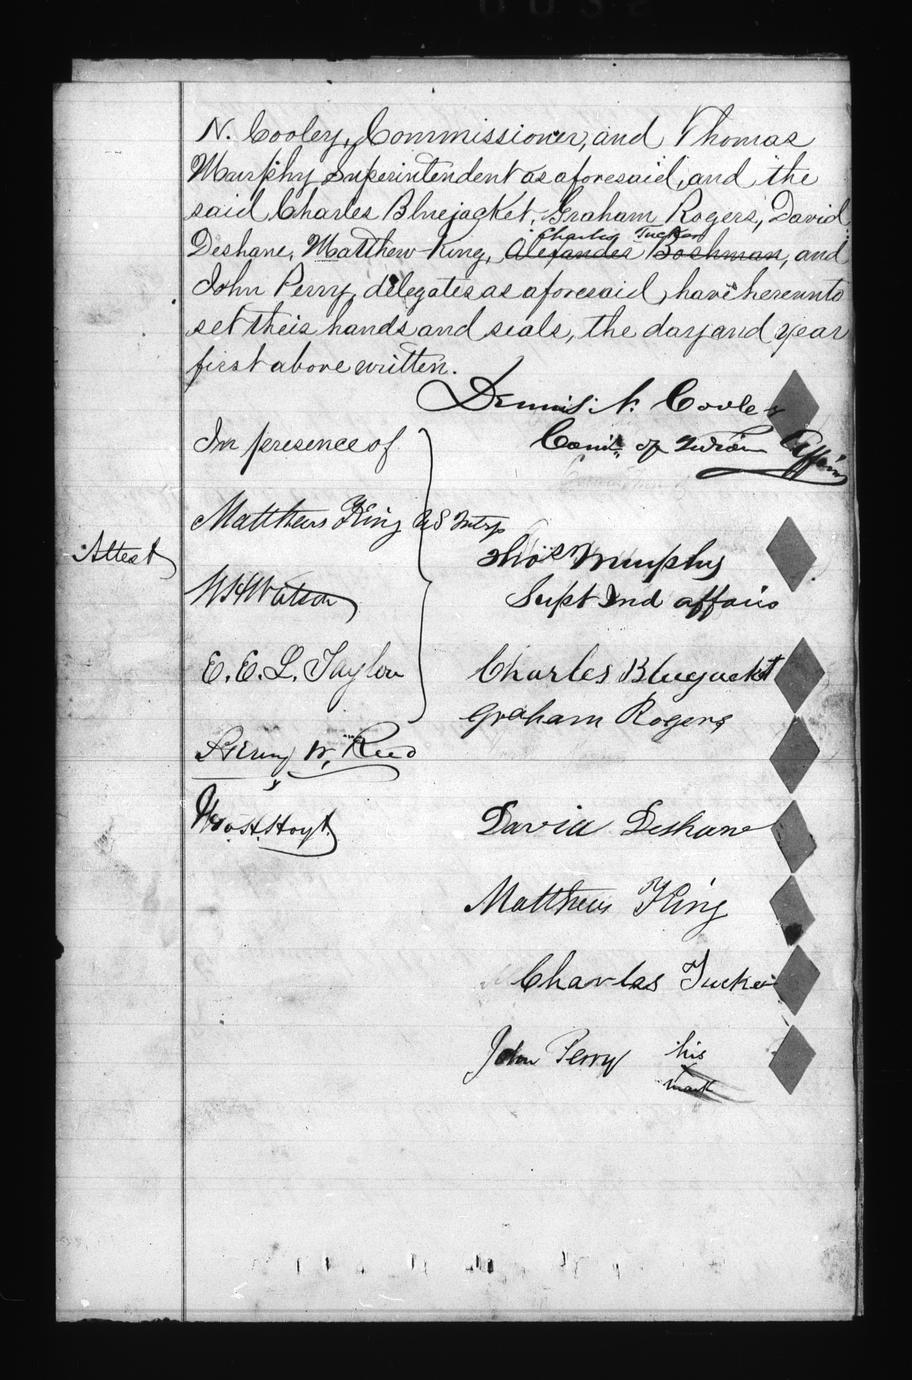 N. Cooley, Commissioner, and Thomas
Murphy Superintendent as aforesaid, and the
said Charles Bluejacket, Graham Rogers, David
Charley Tucker
Deshane, Matthew King, Alexander Bushman, and
John Perry, delegates as aforesaid, have hereunto
set their hands and seals, the day and year
first above written.
Dennis N. Cooley
Com'r of Indian Affairs
In presence of
Matthew King US Intrp
Attest
Thos Murphy
W H Watson
Supt Ind affairs
E. E. L. Taylor
Charles Bluejacket
Graham Rogers
W. Reed
David Deshane
Hoyt
Matthew King
Charles Tucker
John Perry his
mark